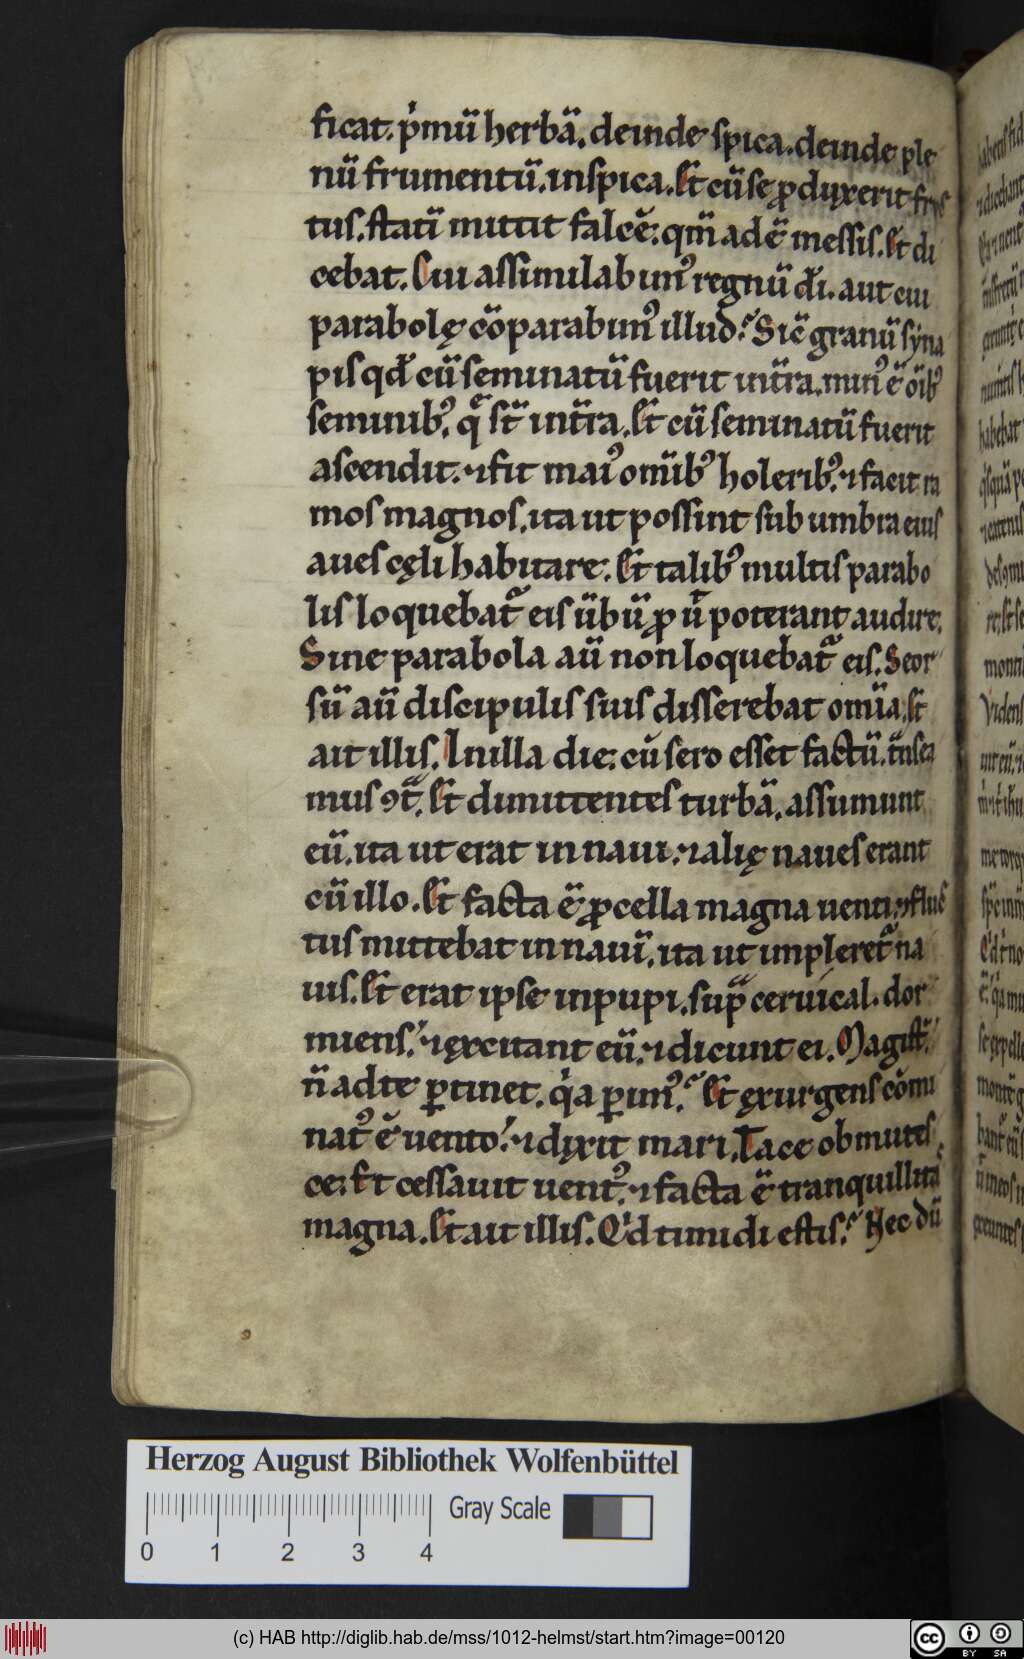 ficat. pͥmū herbā. deinde spica. deinde ple
nū frumentū. in spica. Et cū se ꝓduxerit fruc
tus. statī mittit falcē. qm̄ adē messis. Et di
cebat. Cui assimilabimꝰ regnū dī. aut cui
parabolę cōparabimꝰ illud? Sic̄ granū syna
pis qd̄ cū seminatū fuerit in tr̄a. minꝰ ē oīb;
seminib; q̄ st̄ in tr̄a. Et cū seminatū fuerit
ascendit. ⁊ fit maiꝰ omīb; holerib; ⁊ facit ra
mos magnos. ita ut possint sub umbra eius
aues cęli habitare. Et talib; multis parabo
lis loquebat᷑ eis ūbū ꝓ ut poterant audire.
Sine parabola aū non loquebat᷑ eis. Seor
sū aū discipulis suis disserebat om̄ia. Et
ait illis. In illa die: cū sero esset factū. t̄nsea
mus ꝯt᷑. Et dimittentes turbā. assumunt
eū. ita ut erat in naui. ⁊ alię naues erant
cū illo. Et facta ē ꝓcella magna uenti. ⁊ fluc
tus mittebat in nauī. ita ut impleret᷑ na
uis. Et erat ipse in puppi. sup̄ ceruical. dor
miens. ⁊ ęxcitant eū. ⁊ dicunt ei. Magist̄.
n̄ ad te ꝑtinet. qͥa ꝑimꝰ? Et ęxurgens cōmi
natꝰ ē uento. ⁊ dixit mari. Tace obmutes
ce. Et cessauit uentꝰ. ⁊ facta ē tranquillita
magna. Et ait illis. Qͥd timidi estis? Nec dū
Herzog August Bibliothek Wolfenbüttel
Gray Scale
0 1 2 3 4
(c) HAB http://diglib.hab.de/mss/1012-helmst/start.htm?image=00120
cc BY SA